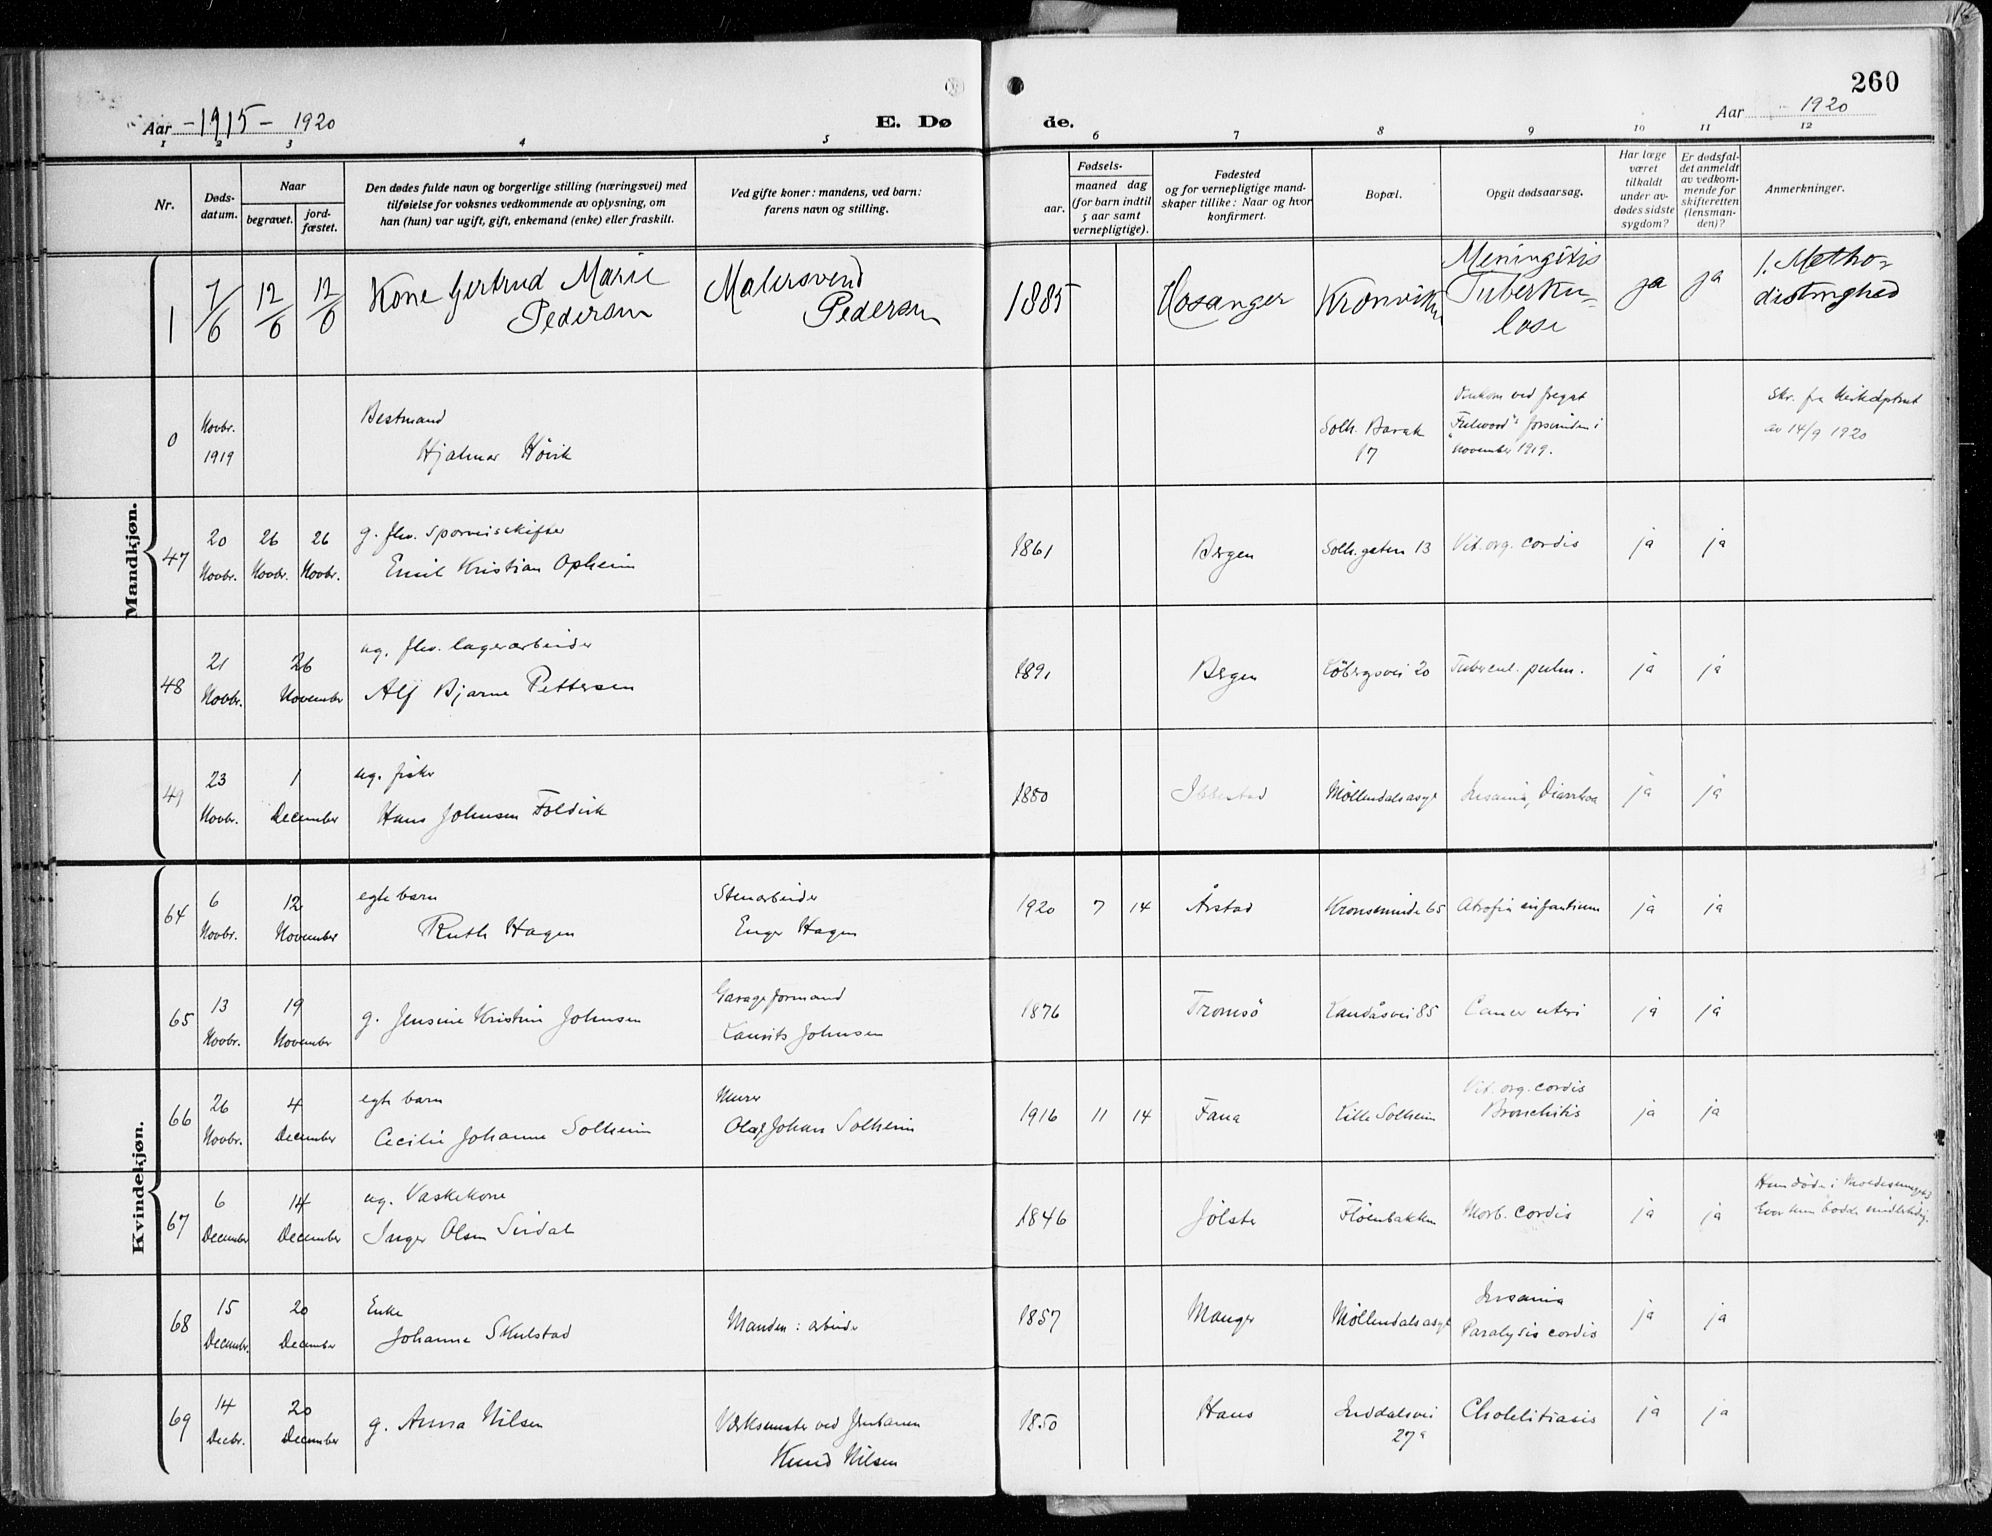 260
Aar -1915- 1920
E. Dø
de.
Aar 1920
1 2 3 4 5 6 7 8 9 10 11 12
Nr.
Døds-
datum.
Naar
begravet.
jord-
fæstet.
Den dødes fulde navn og borgerlige stilling (næringsvei) med
tilføielse for voksnes vedkommende av oplysning, om
han (hun) var ugift, gift, enkemand (enke) eller fraskilt.
Ved gifte koner: mandens, ved barn:
farens navn og stilling.
Fødsels-
aar.
maaned dag
(for barn indtil
5 aar samt
vernepligtige).
Fødested
og for vernepligtige mand-
skaper tillike: Naar og hvor
konfirmert.
Bopæl.
Opgit dødsaarsag.
Har læge
været
tilkaldt
under av-
dødes sidste
sygdom?
Er dødsfal-
det anmeldt
av vedkom-
mende for
skifteretten
(lensman-
den)?
Anmerkninger.
Mandkjøn.
1 7/6 12/6 12/6 Kone Gertrud Marie
Pedersen
Malersvend
Pedersen
1885 Hosanger
Meningitis
Tuberku-
lose
ja ja
1. Metho-
distmghed
0 Novbr.
1919
Bestmand
Hjalmar Høvik
Solh. Barak
17
Omkom ved fregat
"Fulwood"s forsvinden i
November 1919.
Skr. fra
av 14/9 1920
47 20 Novbr. 26 Novbr. 26 Novbr.
g. fhv. Sporveisskifter
Emil Kristian Opheim
1861 Bergen Solh.gaten 13 Vit. org. cordis ja ja
48 21 Novbr. 26 November
ug. fhv. lagerarbeider
Alf Bjarne Pettersen
1891 Bergen Løbergsvei 20 Tubercul. pulm. ja ja
49 23 Novbr. 1 December
ug. fisker
Hans Johnsen Foldvik
1880 Ibbestad Møllendalsasyl Insania, Diarrhoa ja ja
Kvindekjøn.
64 6 Novbr. 12 November
egte barn
Ruth Hagen
Stenarbeider
Enger Hagen
1920 7 14 Årstad Kronsminde 65 Atrofia infantium ja ja
65 13 Novbr. 19 November
g. Jensine Kristine Johnsen
Garageformand
Laurits Johnsen
1876 Tromsö Landåsvei 85 Cancer uteri ja ja
66 26 Novbr. 4 December
egte barn
Cecilie Johanne Solheim
Murer
Olaf Johan Solheim
1916 11 14 Fana Lille Solheim
Vit. org. cordis
Bronchitis
ja ja
67 6 December 14 December
ug. Vaskekone
Inger Olsen Sindal
1846 Jølster Fløenbakken Morb. cordis ja ja
Hun døde i
hvor hun bodde midlertidig.
68 15 Decembr. 20 December
Enke
Johanne Skulstad
Manden: arbeider
1857 Manger Møllendalsasyl
Insania
Paralysis cordis
ja ja
69 14 Decbr. 20 December
g. Anna Nilsen
Værksmester ved Jernbanen
Knud Nilsen
1850 Haus
27a
Cholelitiasis ja ja